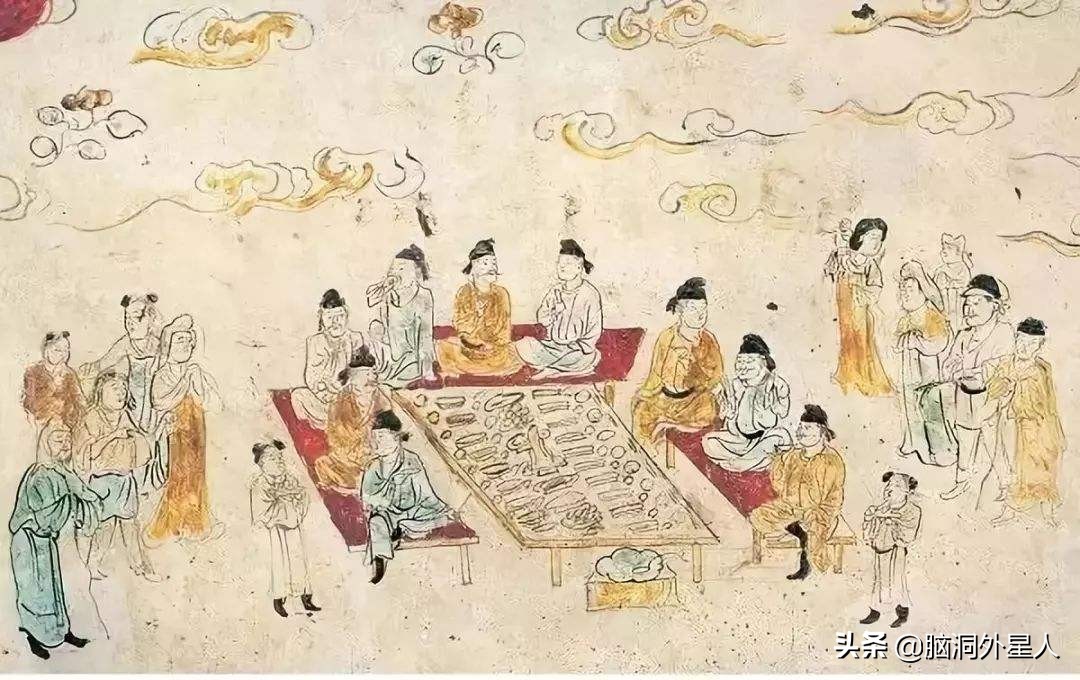 头条 @脑洞外星人